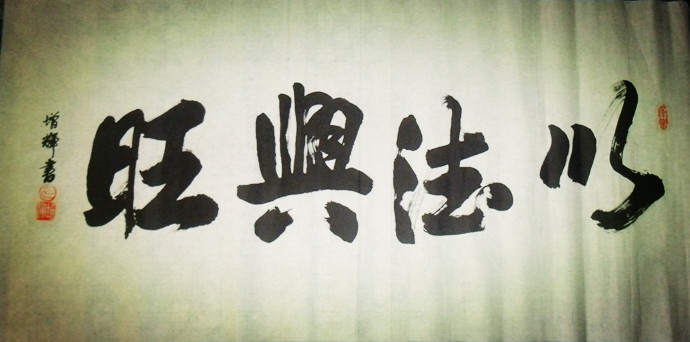 以法興旺
增輝書